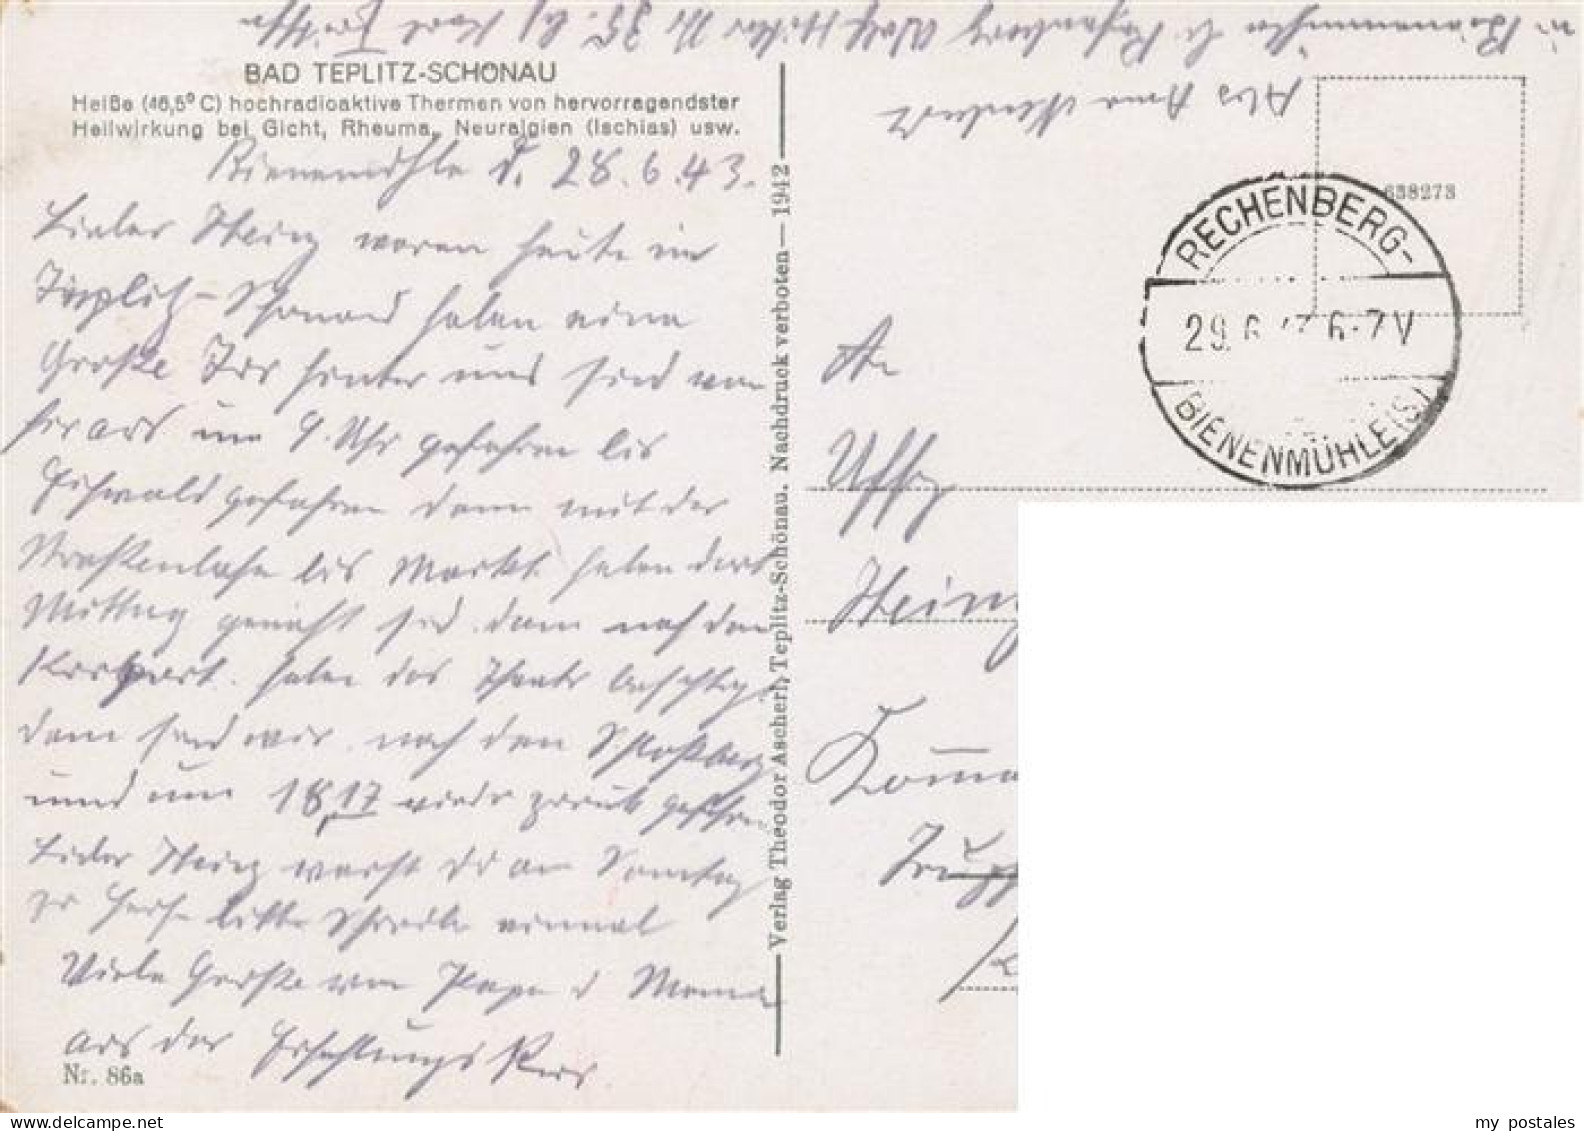 BAD TEPLITZ-SCHÖNAU
Heiße (46,5° C) hochradioaktive Thermen von hervorragendster
Heilwirkung bei Gicht, Rheuma, Neuralgien (Ischias) usw.
Bienenmühle d. 28.6.43.
Lieber Heinz waren heute in
Töplitz-Schönau haben eine
Große Tur hinter uns sind von
hir aus um 9. Uhr gefahren bis
Eichwald gefahren dann mit der
Straßenbahn bis Markt. haben dort
Mittag gemacht sind dann nach den
Kurpark. haben das Theater besichtigt
dann sind wir nach den Schloßberg
und um 18,17 wieder zurück gefahren
Lieber Heinz warst du am Sonntag
zu Hause bitte Schreibe einmal
Viele Grüße von Papa u Mama
aus der Erhohlungs Kur
Nr. 86a
Verlag Theodor Ascherl, Teplitz-Schönau. Nachdruck verboten — 1942
638273
RECHENBERG-
29.6.43 6-7V
BIENENMÜHLE (S.)
An
Uffz
Heinz